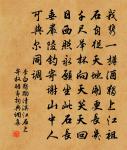 我攜一樽酒獨上江祖
石自從天地開更長幾
千尺舉杯向天笑天回
日西照永願坐此石長
垂嚴陵釣寄謝山中人
可與爾同調
李白獨酌清溪江石上
寄權昭夷